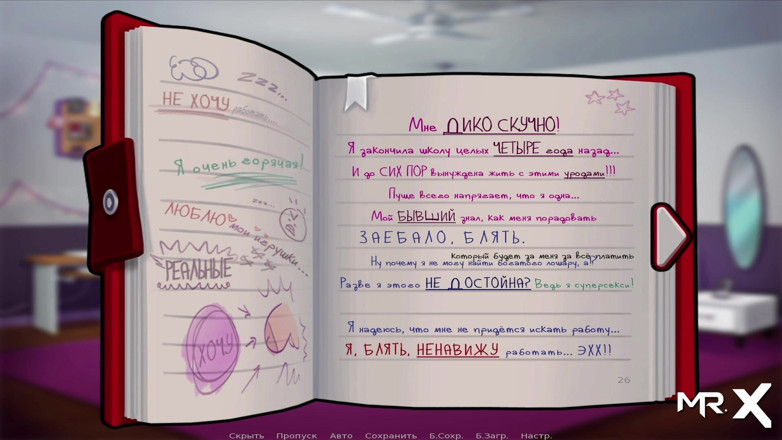 zzz...
НЕ ХОЧУ работать...
Я очень горячая!
ЛЮБЛЮ мои игрушки...
РЕАЛЬНЫЕ
ХОЧУ
Мне ДИКО СКУЧНО!
Я закончила школу целых ЧЕТЫРЕ года назад...
И до СИХ ПОР вынуждена жить с этими уродами!!!
Пуще всего напрягает, что я одна...
Мой БЫВШИЙ знал, как меня порадовать
ЗАЕБАЛО, БЛЯТЬ.
Который будет за меня за всё платить
Ну почему я не могу найти богатого лошару, а?
Разве я этого НЕ ДОСТОЙНА? Ведь я суперсекси!
Я надеюсь, что мне не придётся искать работу...
Я, БЛЯТЬ, НЕНАВИЖУ работать... ЭХХ!!
26
MR. X
Скрыть Пропуск Авто Сохранить Б.Сохр. Б.Загр. Настр.